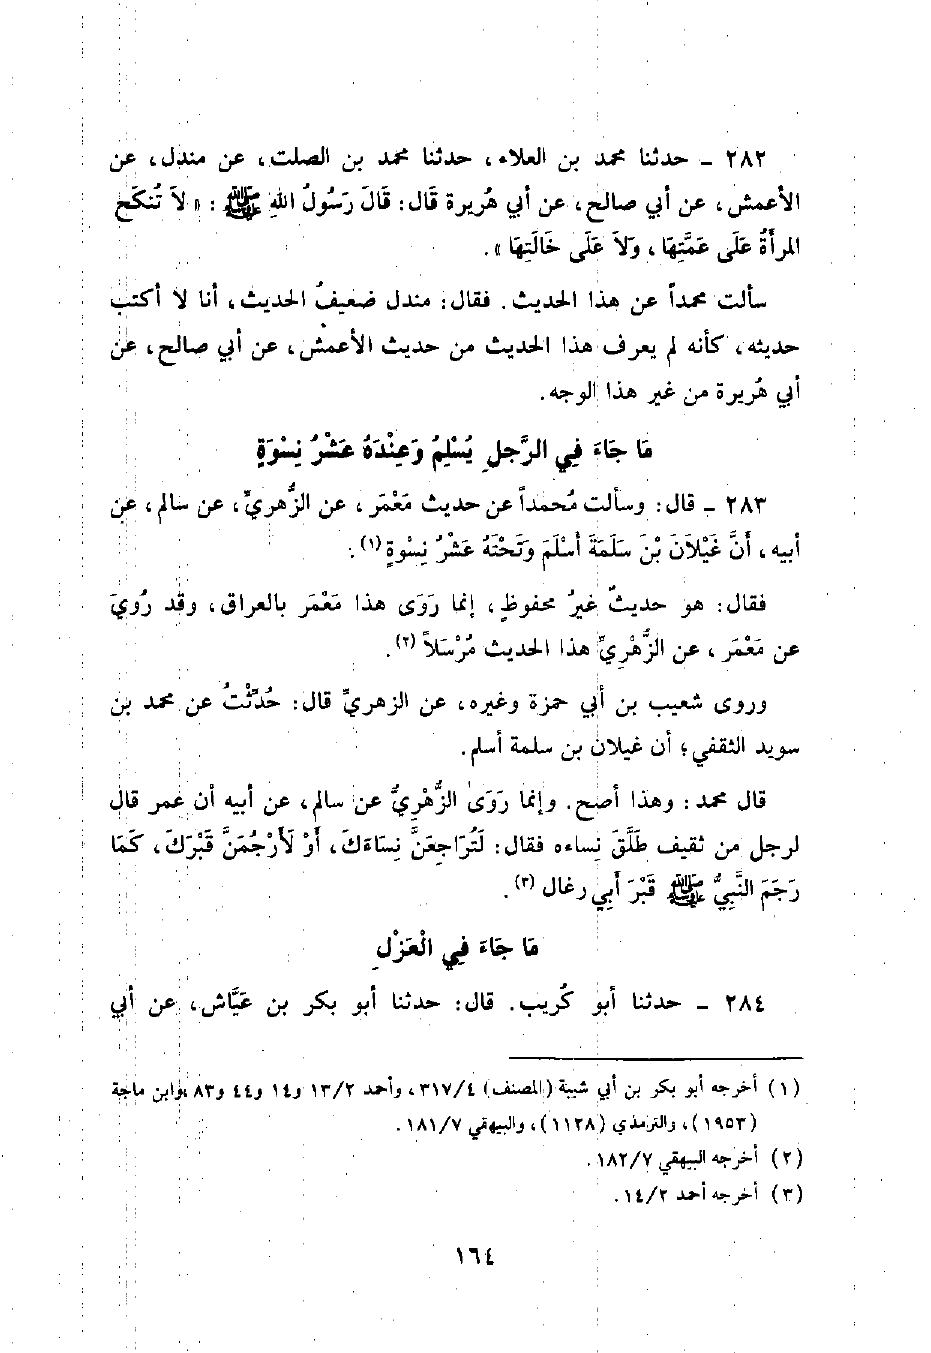 ٢٨٢ - حدثنا محمد بن العلاء، حدثنا محمد بن الصلت، عن مندل، عن
الأعمش، عن أبي صالح، عن أبي هُريرة قَال: قَالَ رَسُولُ اللهِ ﷺ: «لاَ تُنكَحُ
المرأَةُ عَلَى عَمَّتِهَا، وَلاَ عَلَى خَالَتِهَا».
سألت محمداً عن هذا الحديث. فقال: مندل ضعيفُ الحديث، أنا لا أكتب
حديثه، كأنه لم يعرف هذا الحديث من حديث الأعمش، عن أبي صالح، عن
أبي هُريرة من غير هذا الوجه.
مَا جَاءَ فِي الرَّجلِ يُسْلِمُ وَعِنْدَهُ عَشْرُ نِسْوَةٍ
٢٨٣ - قال: وسألت مُحمداً عن حديث مَعْمَر، عن الزُّهريِّ، عن سالم، عن
أبيه، أنَّ غَيْلاَنَ بْنَ سَلَمَةَ أسْلَمَ وَتَحْتَهُ عَشْرُ نِسْوةٍ (١).
فقال: هو حديثٌ غيرُ محفوظٍ، إنما رَوَى هذا مَعْمَر بالعراق، وقد رُويَ
عن مَعْمَر، عن الزُّهْرِيِّ هذا الحديث مُرْسَلاً (٢).
وروى شعيب بن أبي حمزة وغيره، عن الزهريِّ قال: حُدِّثْتُ عن محمد بن
سويد الثقفي؛ أن غيلان بن سلمة أسلم.
قال محمد: وهذا أصح. وإنما رَوَىٰ الزُّهْرِيُّ عن سالم، عن أبيه أن عمر قال
لرجل من ثقيف طَلَّقَ نِساءه فقال: لَتُرَاجِعَنَّ نِسَاءَكَ، أوْ لَأَرْجُمَنَّ قَبْرَكَ، كَمَا
رَجَمَ النَّبِيُّ ﷺ قَبْرَ أَبِي رغال (٣).
مَا جَاءَ فِي الْعَزْلِ
٢٨٤ - حدثنا أبو كُريب. قال: حدثنا أبو بكر بن عَيَّاش، عن أبي
(١) أخرجه أبو بكر بن أبي شيبة (المصنف) ٣١٧/٤، وأحمد ١٣/٢ و١٤ و٤٤ و٨٣، وابن ماجة
(١٩٥٣)، والترمذي (١١٢٨)، والبيهقي ١٨١/٧.
(٢) أخرجه البيهقي ١٨٢/٧.
(٣) أخرجه أحمد ١٤/٢.
١٦٤